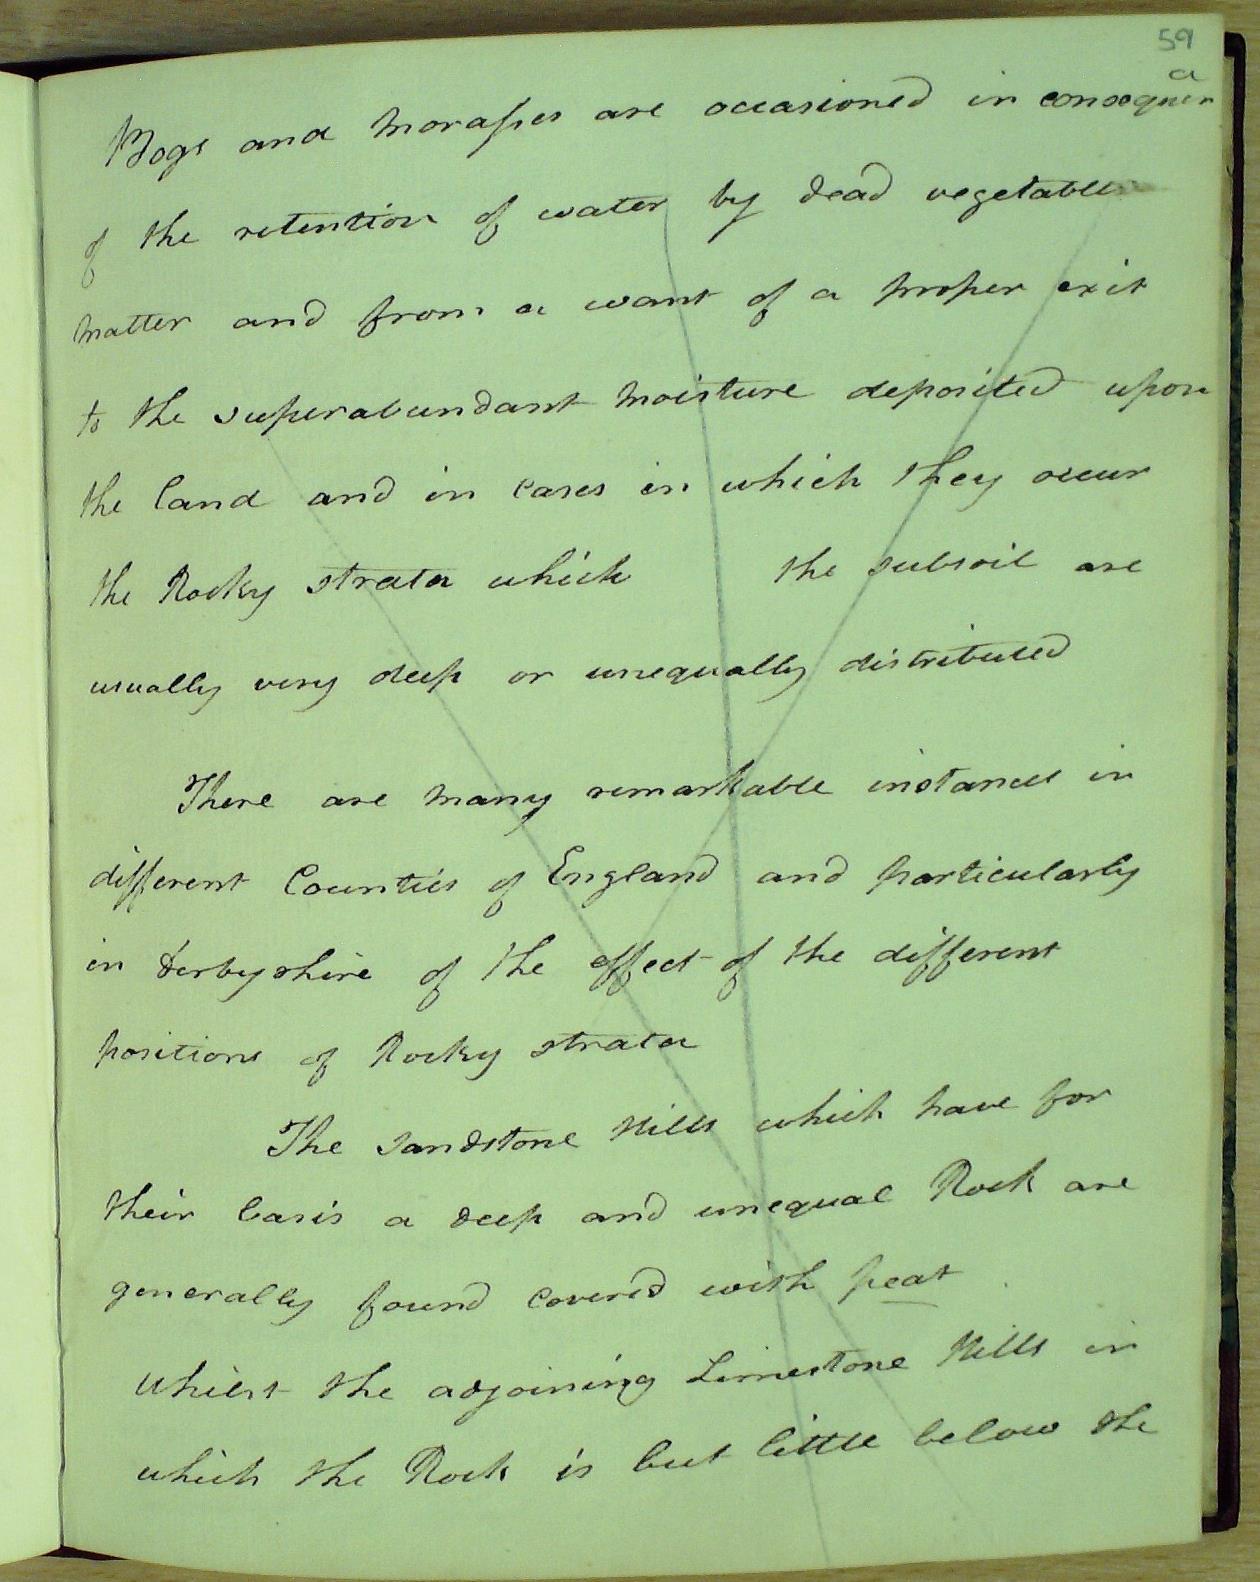 59
a
Bogs and Morasses are occasioned in consequen
of the retention of water by dead vegetable
matter and from a want of a proper exit
to the superabundant moisture deposited upon
the land and in cases in which they occur
the Rocky strata which the subsoil are
usually very deep or unequally distributed
There are many remarkable instances in
different Counties of England and particularly
in Derbyshire of the effect of the different
positions of Rocky strata
The Sandstone Hills which have for
their basis a deep and unequal Rock are
generally found cover'd with peat
whilst the adjoining Limestone Hills in
which the Rock is but little below the